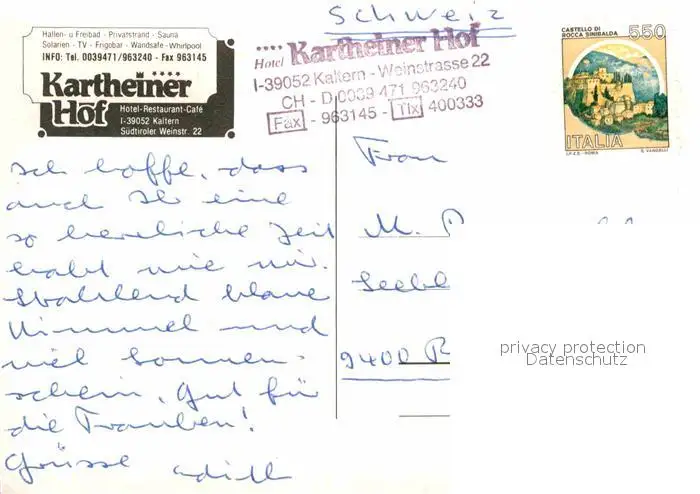 Hallen- u Freibad - Privatstrand - Sauna
Solarien - TV - Frigobar - Wandsafe - Whirlpool
INFO: Tel. 0039471/963240 - Fax 963145
Kartheiner
Hof
Hotel-Restaurant-Café
I-39052 Kaltern
Südtiroler Weinstr. 22
Schweiz
Hotel Kartheiner Hof
I-39052 Kaltern - Weinstrasse 22
CH - D 0039 471 963240
Fax - 963145 - Tlx 400333
CASTELLO DI
ROCCA SINIBALDA
550
ITALIA
I.P.Z.S. - ROMA E. VANGELLI
Ich hoffe, dass
auch Ihr eine
so herrliche Zeit
habt wie wir.
Strahlend blaue
Himmel und
viel Sonnen-
schein, Gut für
die Trauben!
Grüsse
Frau
M.
Seebl
9400 R
privacy protection
Datenschutz